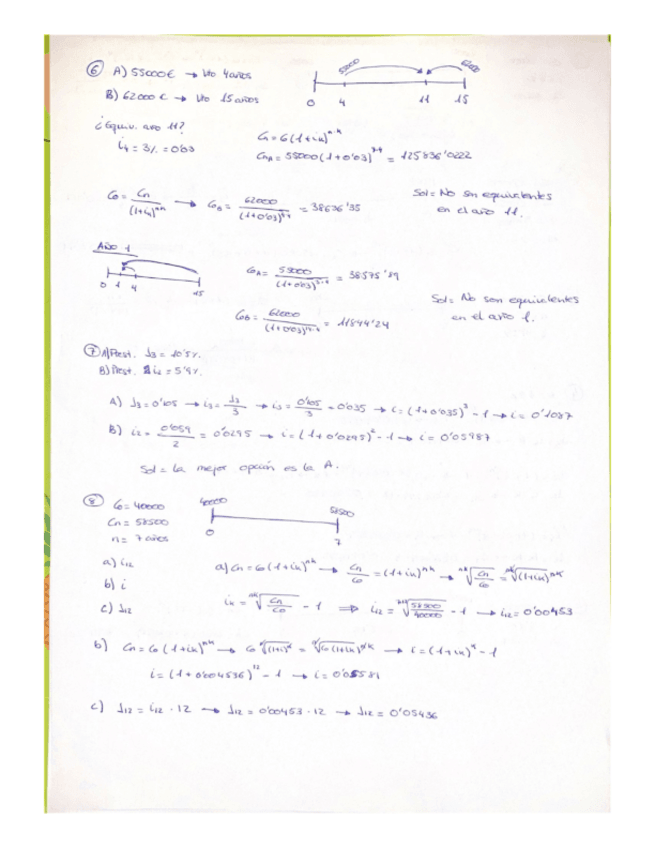 ⑥ A) 55000€ → Vto 4 años
55000 62000
B) 62000€ → Vto 15 años
0 4 11 15
¿Equiv. año 11?
i4 = 3% = 0'03
Cn = Co(1+ik)^n·k
CnA = 55000(1+0'03)^7·4 = 125836'0222
Co = Cn/(1+ik)^nk → CoB = 62000/(1+0'03)^4·4 = 38636'35
Sol = No son equivalentes
en el año 11.
AÑO 1
0 1 4 15
CoA = 55000/(1+0'03)^3·4 = 38575'89
CoB = 62000/(1+0'03)^14·4 = 11844'24
Sol = No son equivalentes
en el año 1.
⑦ A) Prest. J3 = 10'5%.
B) Prest. i2 = 5'9%.
A) J3 = 0'105 → i3 = J3/3 → i3 = 0'105/3 = 0'035 → i = (1+0'035)^3 - 1 → i = 0'1087
B) i2 = 0'059/2 = 0'0295 → i = (1+0'0295)^2 - 1 → i = 0'05987
Sol = La mejor opción es la A.
⑧ Co = 40000
40000 58500
Cn = 58500
n = 7 años
0 7
a) i12
a) Cn = Co(1+ik)^nk → Cn/Co = (1+ik)^nk → nk√(Cn/Co) = nk√(1+ik)^nk
b) i
c) J12
ik = nk√(Cn/Co) - 1 ⇒ i12 = 7·12√(58500/40000) - 1 → i12 = 0'00453
b) Cn = Co(1+ik)^nk → Co n√(1+i)^n = n√Co(1+ik)^nk → i = (1+ik)^k - 1
i = (1+0'004536)^12 - 1 → i = 0'05581
c) J12 = i12 · 12 → J12 = 0'00453 · 12 → J12 = 0'05436